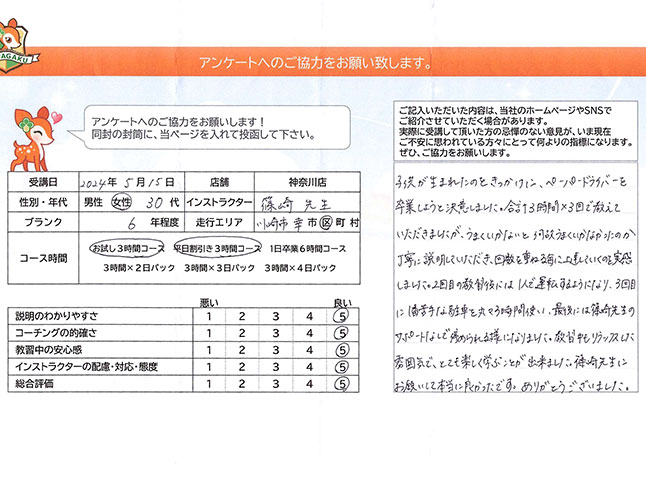 AGAKU
アンケートへのご協力をお願い致します。
アンケートへのご協力をお願いします!
同封の封筒に、当ページを入れて投函して下さい。
ご記入いただいた内容は、当社のホームページやSNSで
ご紹介させていただく場合があります。
実際に受講して頂いた方の忌憚のない意見が、いま現在
ご不安に思われている方々にとって何よりの指標になります。
ぜひ、ご協力をお願いします。
受講日 2024年 5月 15日 店舗 神奈川店
性別・年代 男性 女性 30代 インストラクター 篠崎 先生
ブランク 6 年程度 走行エリア 川崎市幸 市 区 町 村
コース時間 お試し3時間コース 平日割引き3時間コース 1日卒業6時間コース
3時間×2日パック 3時間×3日パック 3時間×4日パック
悪い 良い
説明のわかりやすさ 1 2 3 4 5
コーチングの的確さ 1 2 3 4 5
教習中の安心感 1 2 3 4 5
インストラクターの配慮・対応・態度 1 2 3 4 5
総合評価 1 2 3 4 5
子供が生まれたのをきっかけに、ペーパードライバーを
卒業しようと決意しました。合計3時間×3回で教えて
いただきましたが、うまくいかないと何故うまくいかなかったのか
丁寧に説明していただき、回数を重ねる毎に上達していくのを実感
しました。2回目の教習後には1人で運転するようになり、3回目
には苦手な駐車を丸々3時間使い、最後には篠崎先生の
サポートなしで停められる様になりました。教習中もリラックスした
雰囲気で、とても楽しく学ぶことが出来ました。篠崎先生に
お願いして本当に良かったです。ありがとうございました。